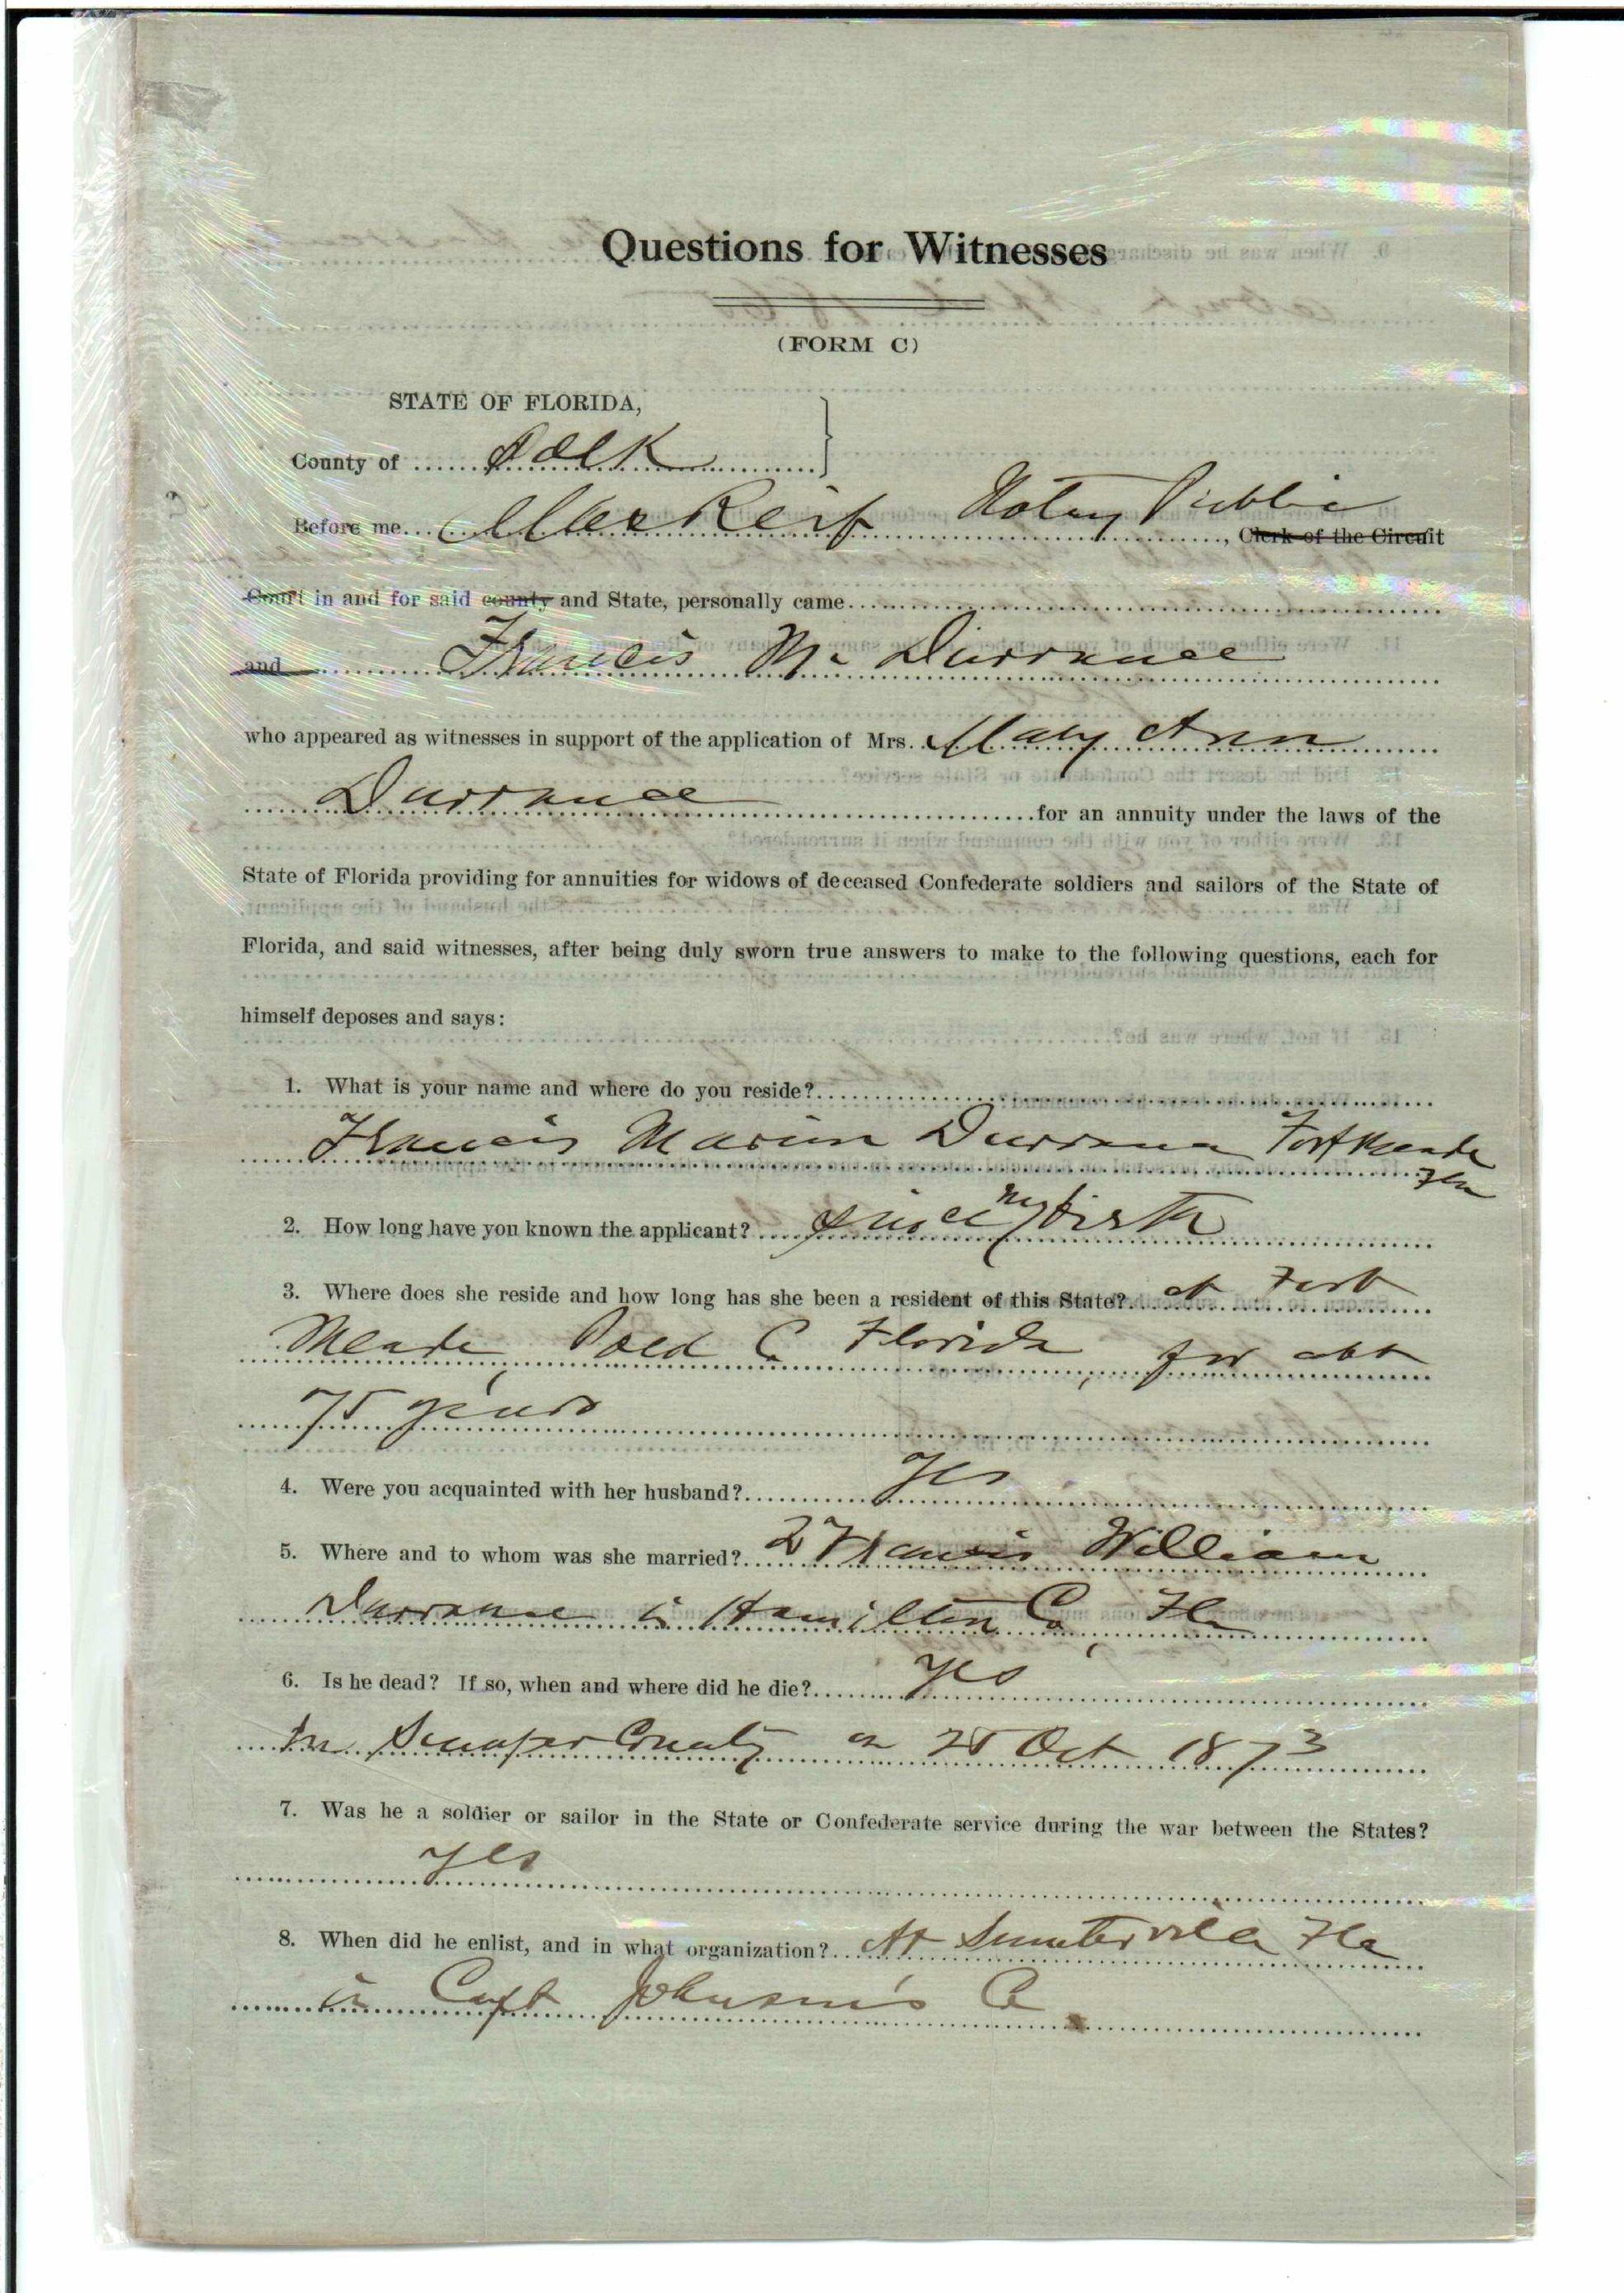 Questions for Witnesses
(FORM C)
STATE OF FLORIDA,
County of Polk
Before me Max Reif Notary Public, Clerk of the Circuit
Court in and for said county and State, personally came
and Francis M. Durrance
who appeared as witnesses in support of the application of Mrs. Mary Ann
Durrance for an annuity under the laws of the
State of Florida providing for annuities for widows of deceased Confederate soldiers and sailors of the State of
Florida, and said witnesses, after being duly sworn true answers to make to the following questions, each for
himself deposes and says:
1. What is your name and where do you reside?
Francis Marion Durrance Fort Meade
Fla
2. How long have you known the applicant? Since my birth
3. Where does she reside and how long has she been a resident of this State? at Fort
Meade, Polk Co Florida, for abt
75 years
4. Were you acquainted with her husband? Yes
5. Where and to whom was she married? Francis William
Durrance in Hamilton Co, Fla
6. Is he dead? If so, when and where did he die? yes
In Sumpter County on 25 Oct 1873
7. Was he a soldier or sailor in the State or Confederate service during the war between the States?
yes
8. When did he enlist, and in what organization? At Sumterville Fla
in Capt Johnson's Co